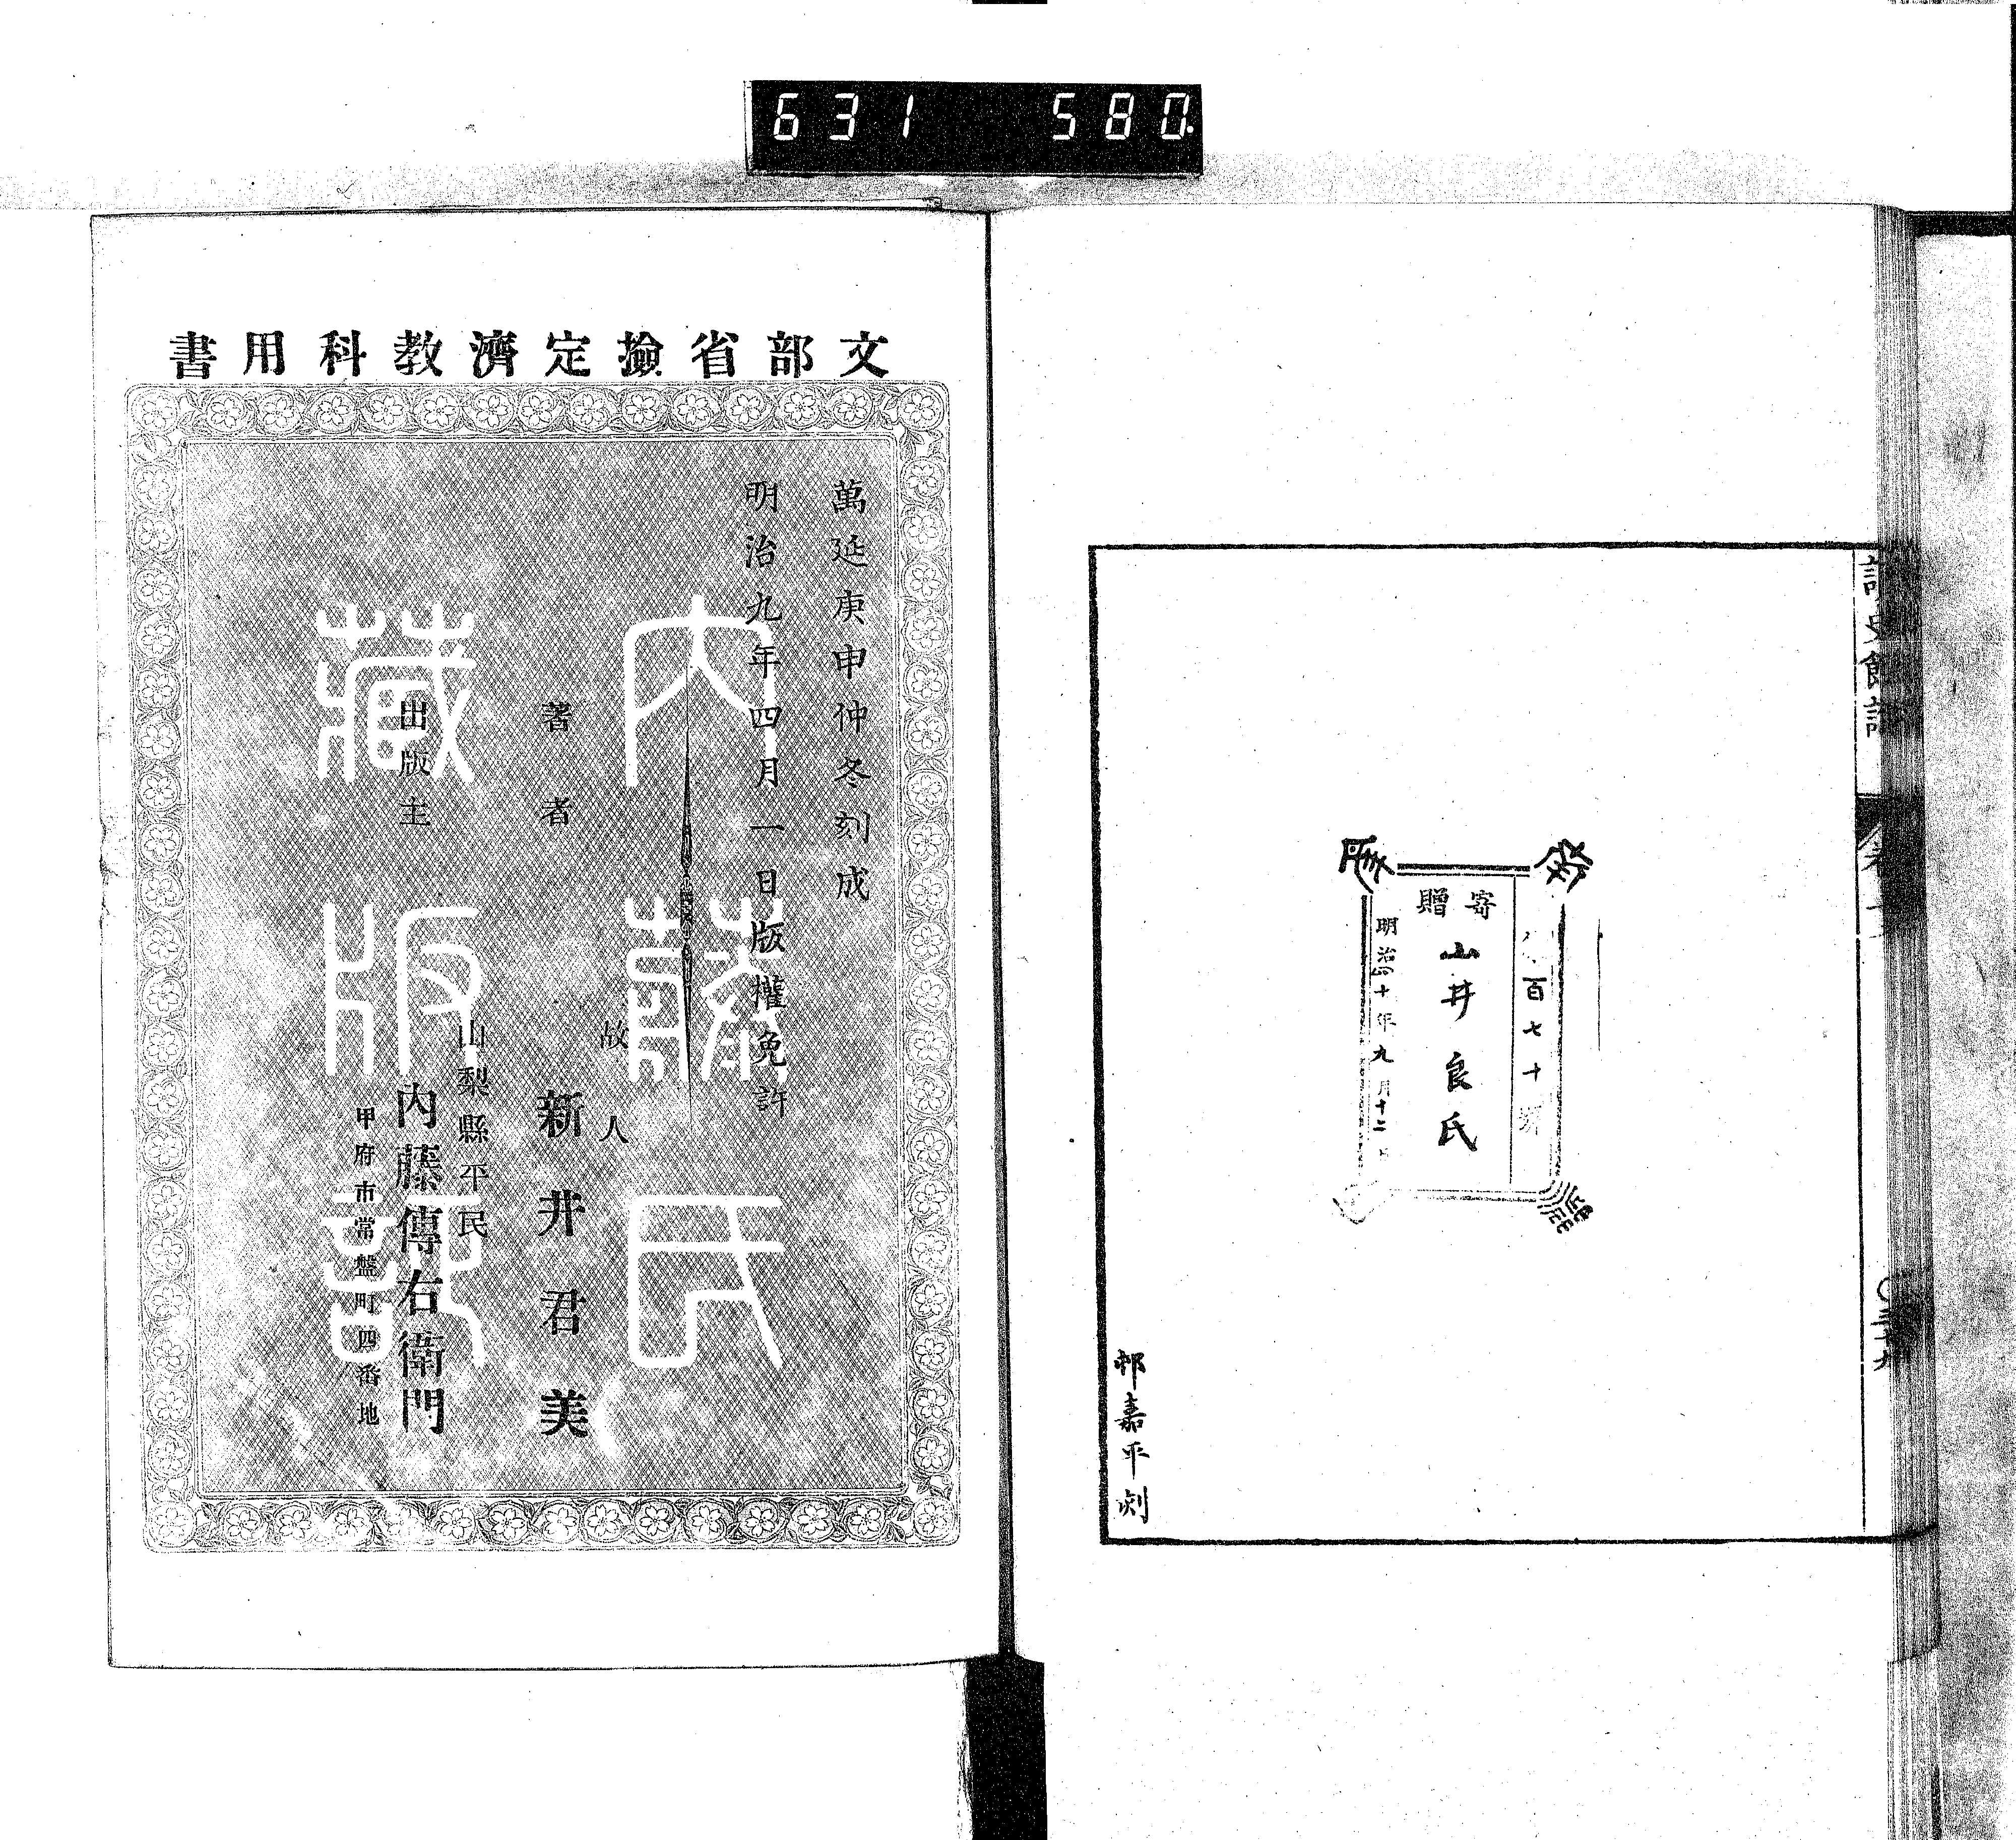 631 580
讀史餘論
寄贈
山井良氏
百七十號
明治四十年九月十二日
邨嘉平刻
文部省撿定濟教科用書
萬延庚申仲冬刻成
明治九年四月一日版權免許
內藤氏
藏版記
故人
著者
新井君美
山梨縣平民
出版主
內藤傳右衛門
甲府市常盤町四番地